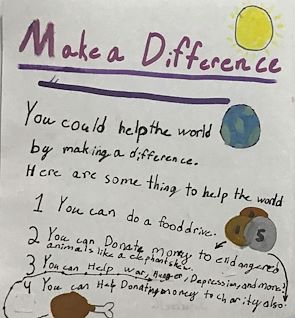 Make a Difference
You could help the world
by making a difference.
Here are some thing to help the world
1 You can do a food drive.
2 You can Donate money to endangered
animals like a elephants
3 You can Help war, hunger, Depression, and more!
4 You can Help Donating money to charity also.